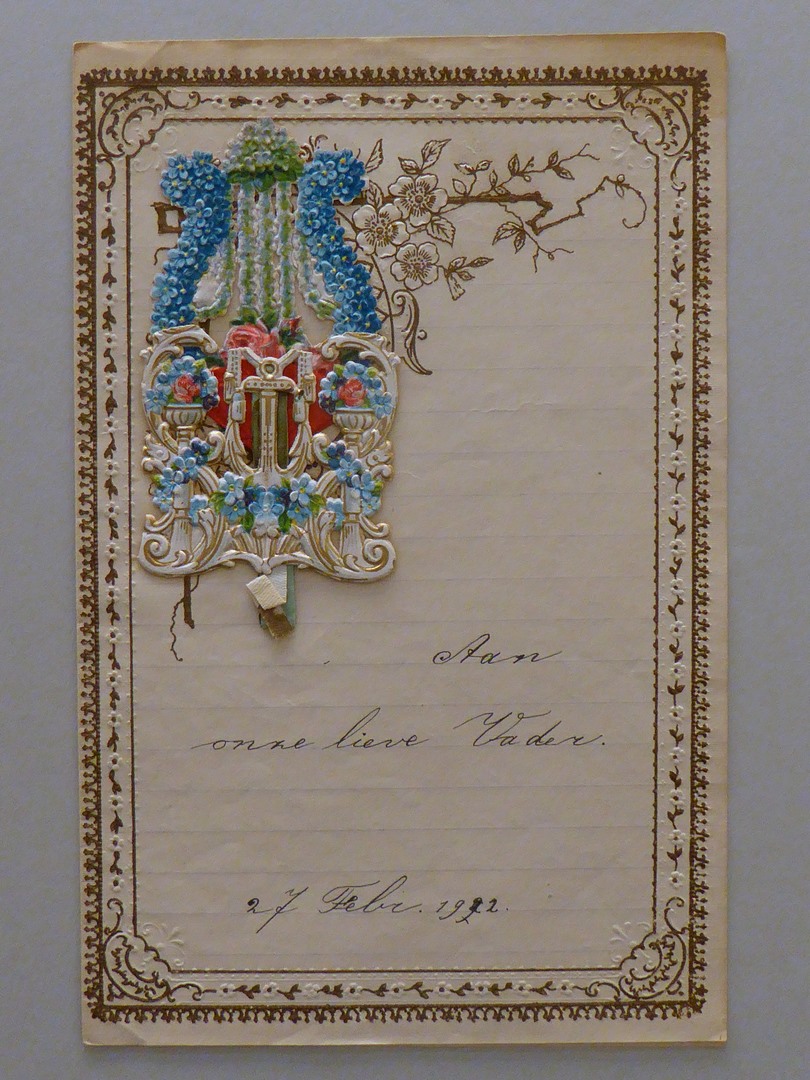 Aan
onze lieve Vader.
27 Febr.